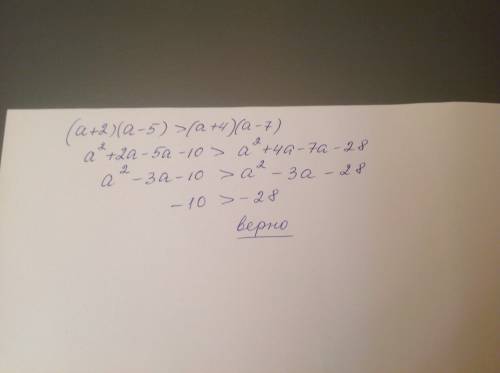 (a+2)(a-5)>(a+4)(a-7)
a²+2a-5a-10> a²+4a-7a-28
a²-3a-10 > a²-3a-28
-10 >-28
верно